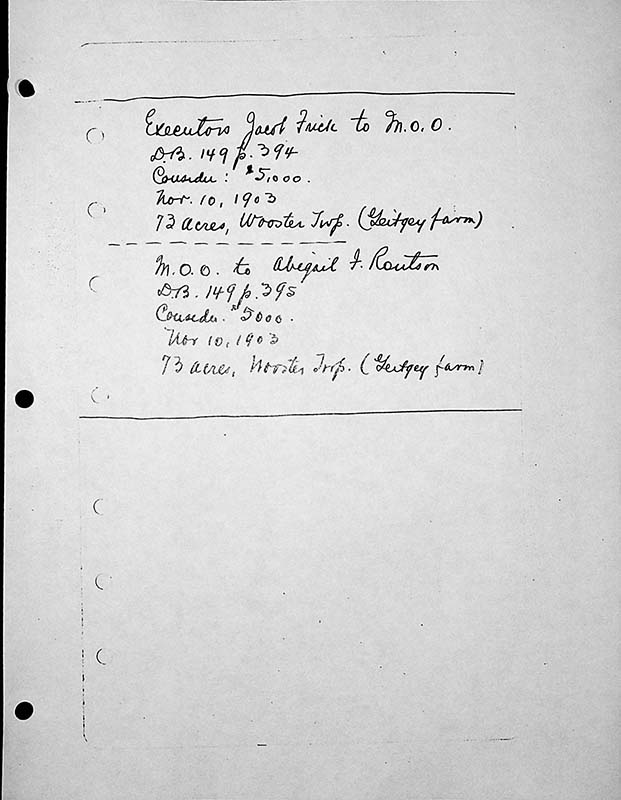 Executors Jacob Frick to M.O.O.
D.B. 149 p. 394
Consider: $5,000.
Nov. 10, 1903
73 acres, Wooster Twp. (Geitgey farm)
M.O.O. to Abigail F. Routson
D.B. 149 p. 395
Consider. $5000.
Nov 10, 1903
73 acres, Wooster Twp. (Geitgey farm)